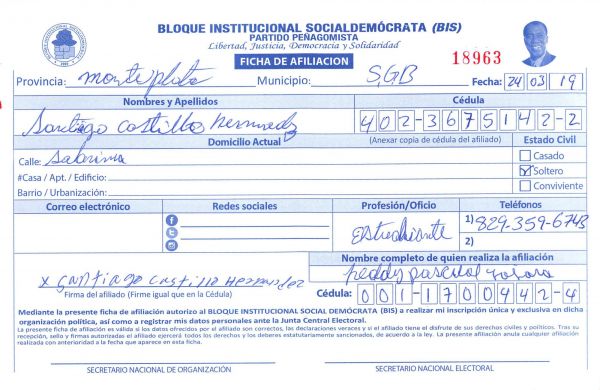 BLOQUE INSTITUCIONAL SOCIALDEMÓCRATA (BIS)
PARTIDO PEÑAGOMISTA
Libertad, Justicia, Democracia y Solidaridad
FICHA DE AFILIACION
18963
Provincia: Monte plata Municipio: SGB Fecha: 24 03 19
Nombres y Apellidos Cédula
Santiago Castillo Hernandez 402-3675142-2
Domicilio Actual (Anexar copia de cédula del afiliado) Estado Civil
Calle: Sabrina Casado
#Casa / Apt. / Edificio: Soltero
Barrio / Urbanización: Conviviente
Correo electrónico Redes sociales Profesión/Oficio Teléfonos
Estudiante 1) 829-359-6743
2)
Nombre completo de quien realiza la afiliación
x Santiago Castillo Hernandez pascual
Firma del afiliado (Firme igual que en la Cédula) Cédula: 001-1700442-4
Mediante la presente ficha de afiliación autorizo al BLOQUE INSTITUCIONAL SOCIAL DEMÓCRATA (BIS) a realizar mi inscripción única y exclusiva en dicha
organización política, así como a registrar mis datos personales ante la Junta Central Electoral.
La presente ficha de afiliación es válida si los datos ofrecidos por el afiliado son correctos, las declaraciones veraces y si el afiliado tiene el disfrute de sus derechos civiles y políticos. Tras su
recepción, sello y firmas autorizadas el afiliado ejercerá todos los derechos y los deberes estatutariamente sancionados, de acuerdo a la ley. La presente afiliación anula cualquier afiliación
realizada con anterioridad a la fecha que aparece en esta ficha.
SECRETARIO NACIONAL DE ORGANIZACIÓN SECRETARIO NACIONAL ELECTORAL